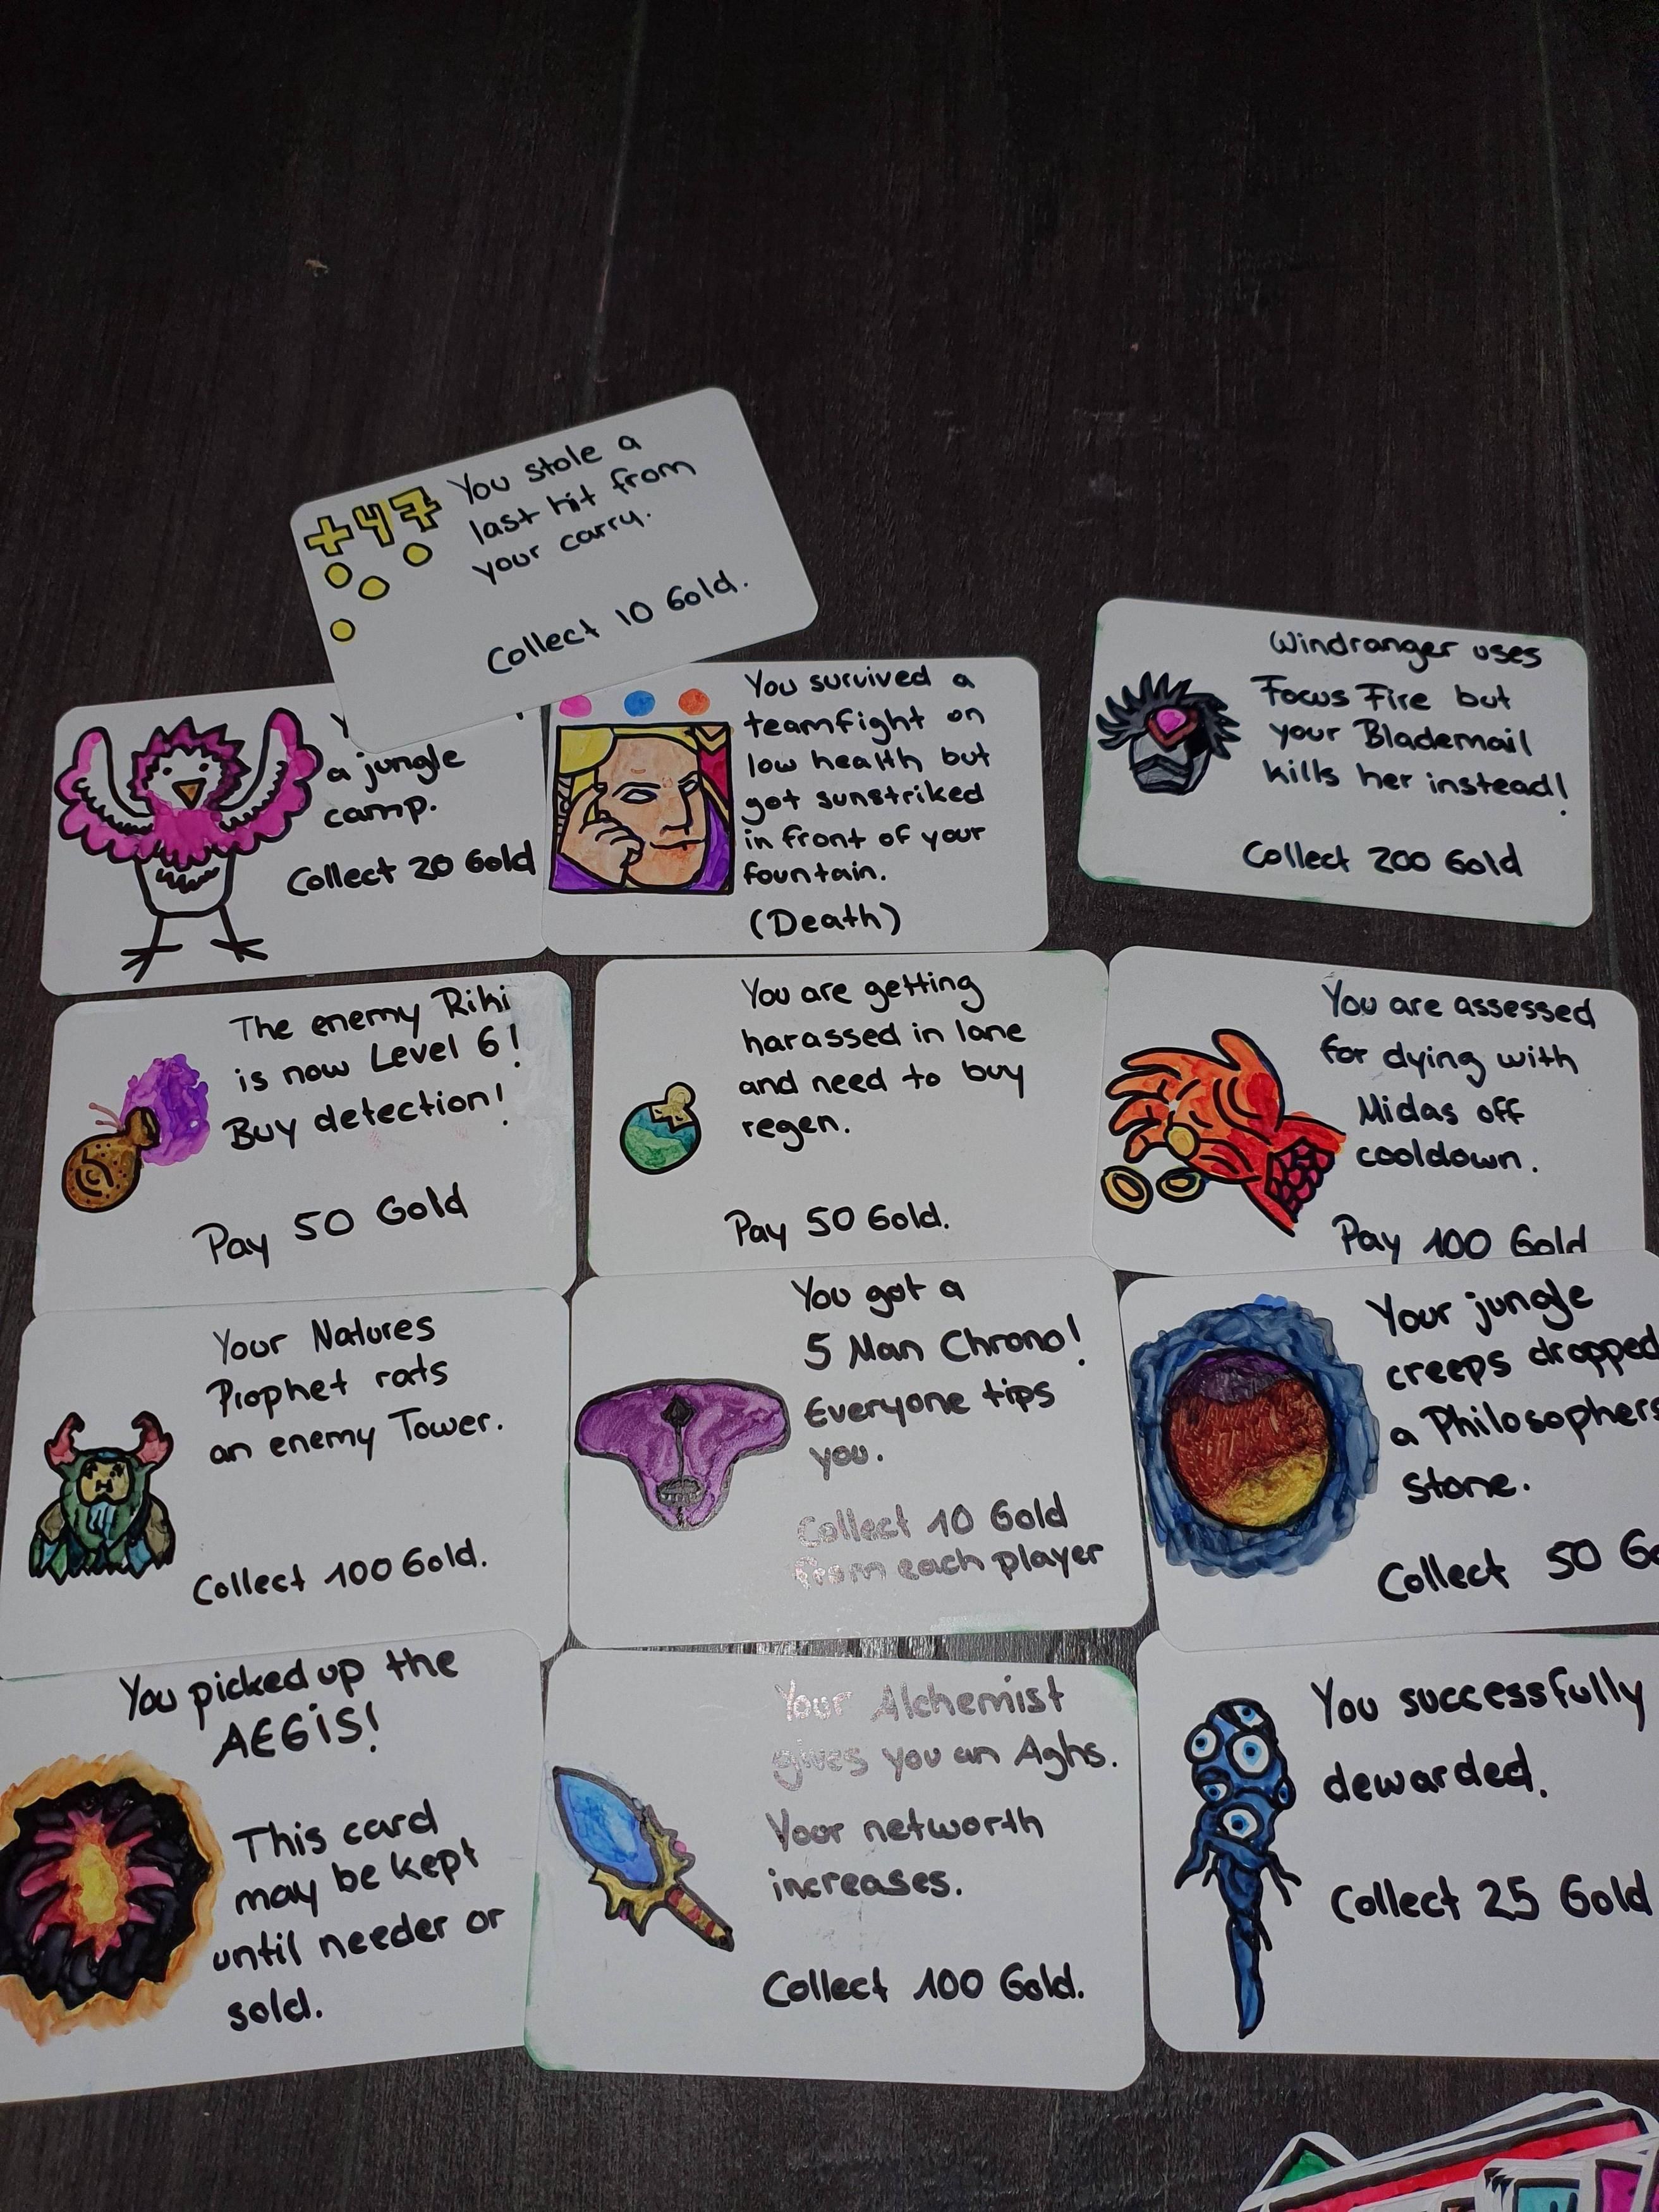 +47
You stole a
last hit from
your carry.
Collect 10 Gold.
a jungle
camp.
Collect 20 Gold
You survived a
teamfight on
low health but
got sunstriked
in front of your
fountain.
(Death)
Windranger uses
Focus Fire but
your Blademail
kills her instead!
Collect 200 Gold
The enemy Riki
is now Level 6!
Buy detection!
Pay 50 Gold
You are getting
harassed in lane
and need to buy
regen.
Pay 50 Gold.
You are assessed
for dying with
Midas off
cooldown.
Pay 100 Gold
Your Natures
Prophet rats
an enemy Tower.
Collect 100 Gold.
You got a
5 Man Chrono!
Everyone tips
you.
Collect 10 Gold
from each player
Your jungle
creeps dropped
a Philosophers
stone.
Collect 50 Go
You picked up the
AEGiS!
This card
may be kept
until needer or
sold.
Your Alchemist
gives you an Aghs.
Your networth
increases.
Collect 100 Gold.
You successfully
dewarded.
Collect 25 Gold